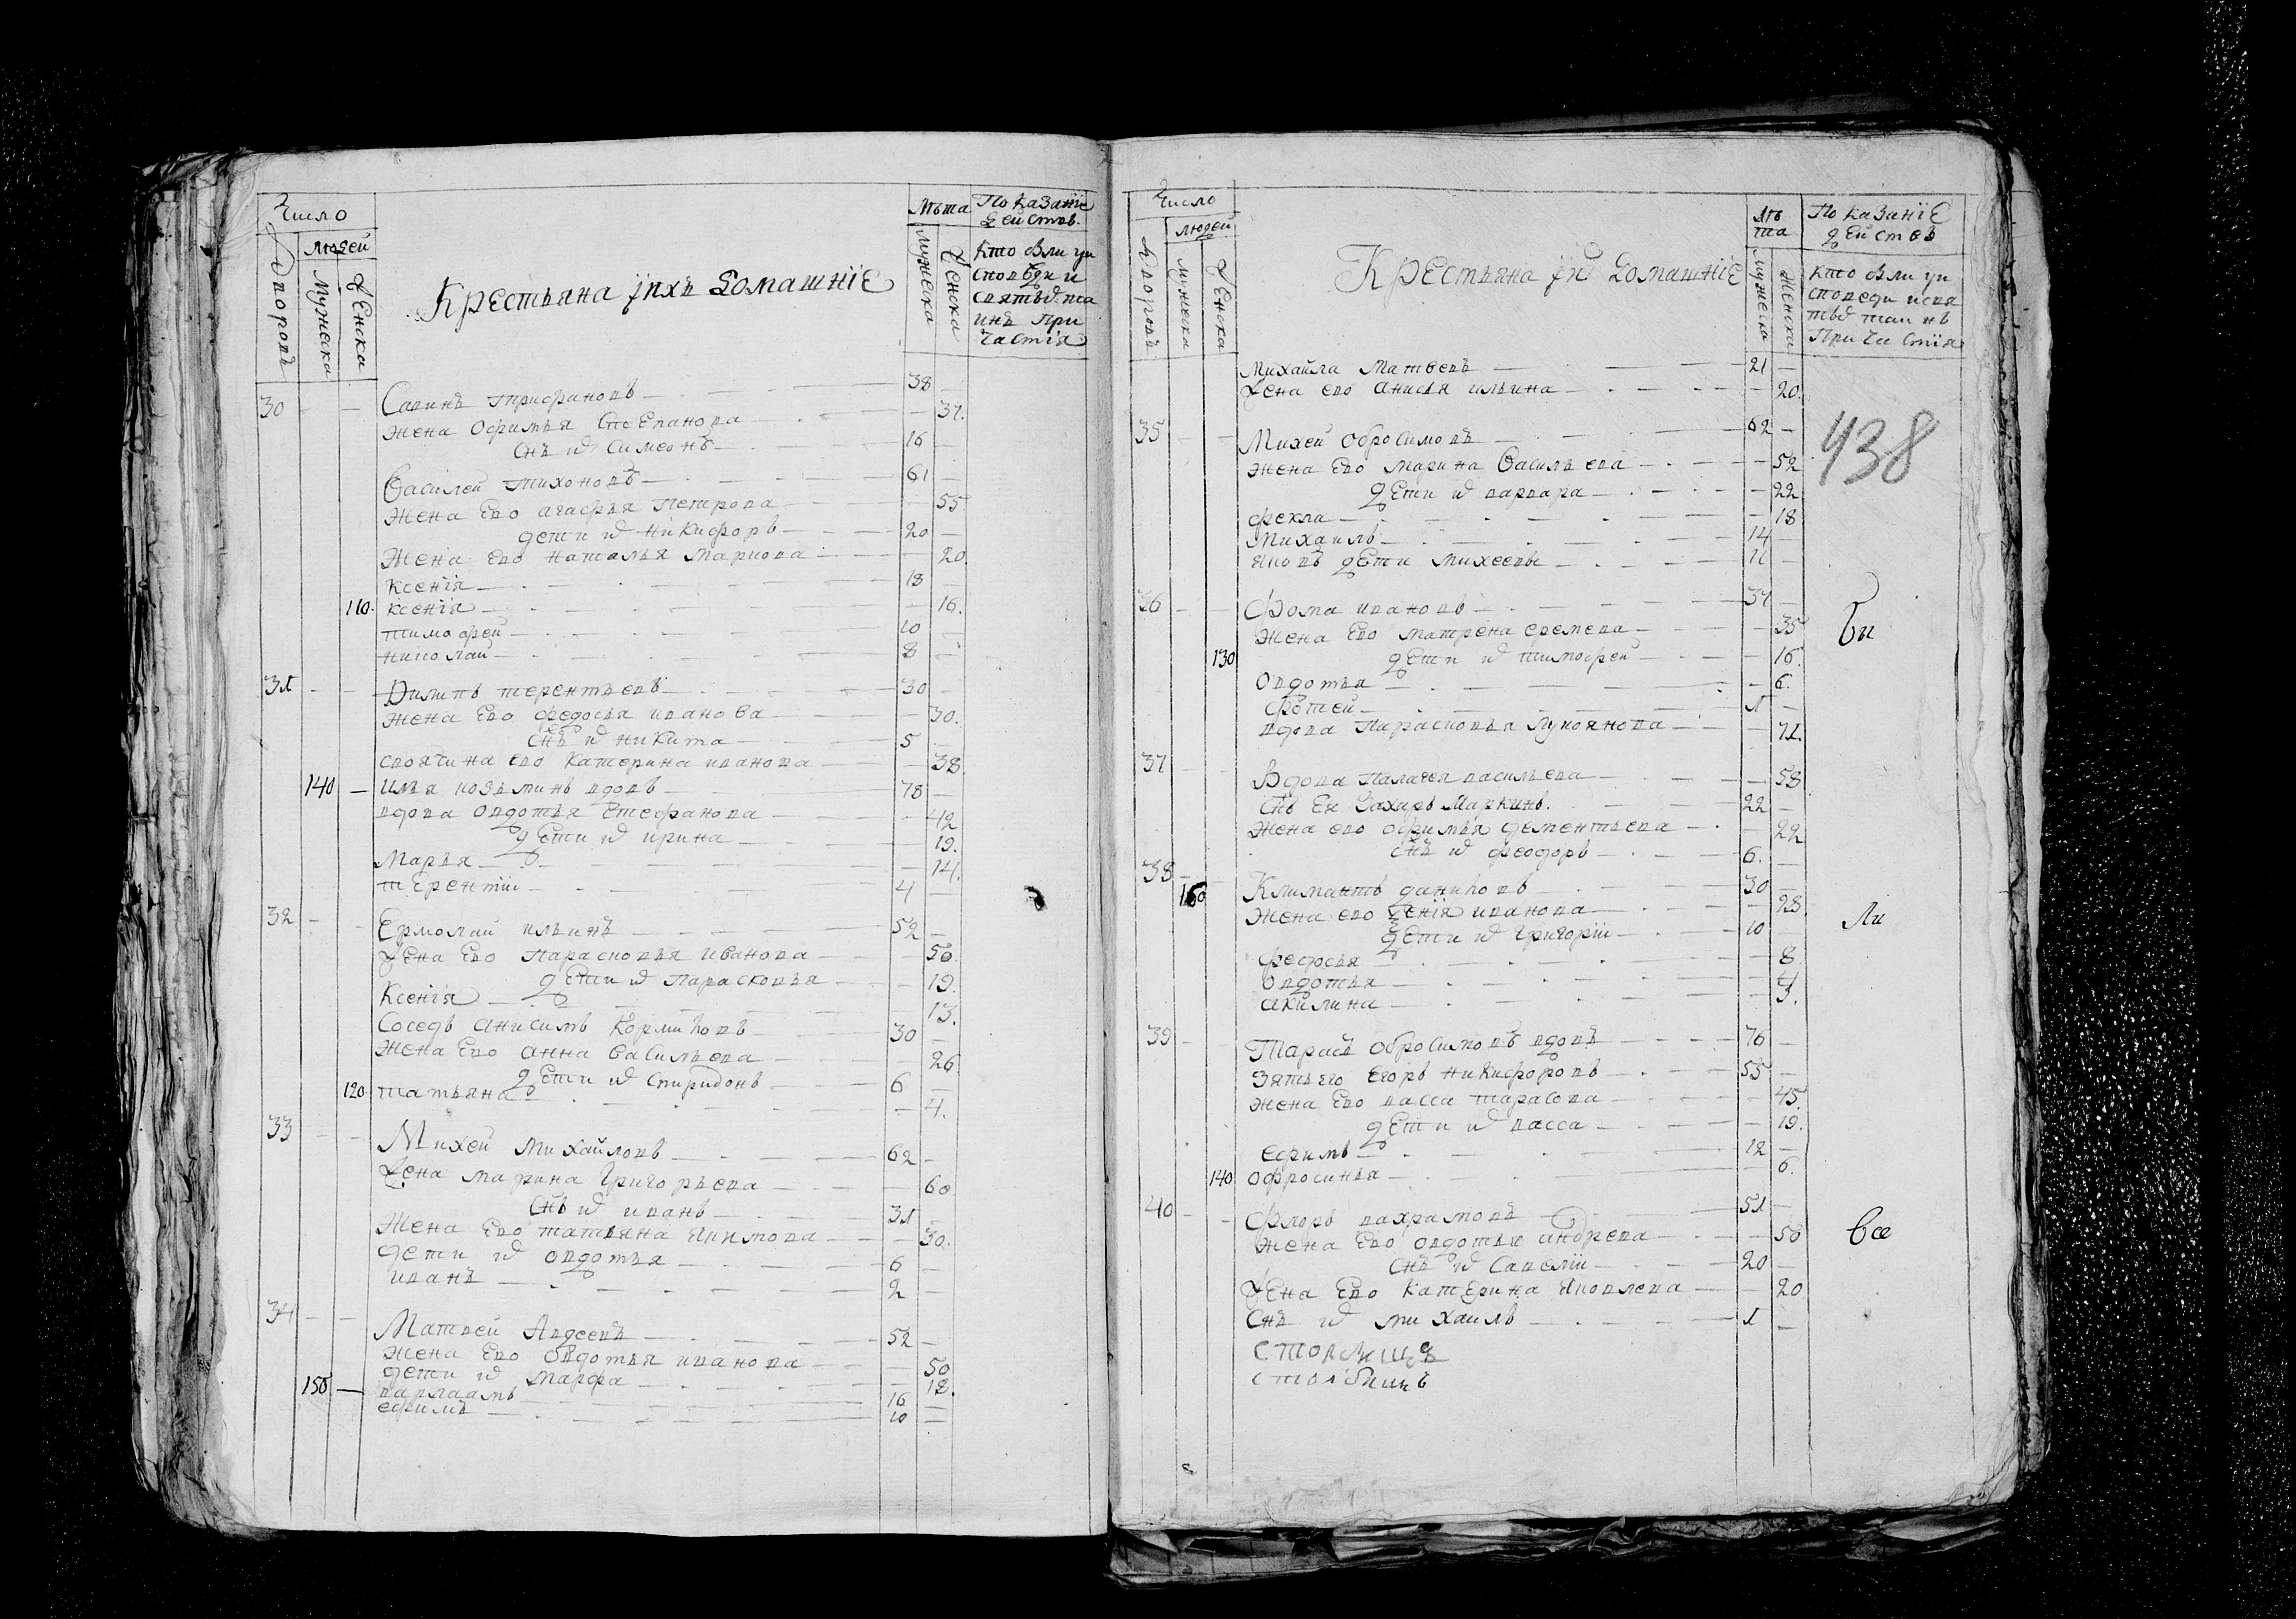 Число
людей
Дворовъ
Мужеска
Женска
Крестьяна ихъ домашнїе
Лѣта
Мужеска
Женска
Показанїе
дейстов.
Кто были у и
споведи и
святых та
инъ При
частїя
30 — — Савинъ Трифановъ — 38 —
жена Офимья Степанова — — 37.
снъ их Симеонъ — 16 —
Василей Тихоновъ — 61 —
жена ево агафья Петрова — — 55
дети их Никифоръ — 20 —
жена ево Наталья Маркова — — 20.
ксенїя — 18 —
110. ксенїя — — 16.
тимофей — 10 —
николай — 8 —
31 — — Филипъ терентьевъ — 30 —
жена ево федосья иванова — — 30.
снъ их никита — 5 —
своячина ево катерина иванова — — 38
140 — илья козьминъ вдовъ — 78 —
вдова овдотья Стефанова — — 42
дети их ирина — — 19.
Марья — — 14.
терентїи — 4 —
32 — — Ермолаи ильинъ — 52 —
жена ево Парасковья иванова — — 50.
дети их Парасковья — — 19.
Ксенїя — — 13.
Соседъ анисимъ Кормиловъ — 30 —
жена ево анна васильева — — 26
дети их Спиридонъ — 6 —
120. татьяна — — 4.
33 — — Михеи михайловъ — 62 —
жена марина григорьева — — 60
снъ их иванъ — 31 —
жена ево татьяна якимова — — 30.
дети их овдотья — 6 —
иванъ — 2 —
34 — — Матвеи Авдеевъ — 52 —
жена ево овдотья иванова — — 50
дети их марфа — — 18.
150 — варлаамъ — 16 —
ефимъ — 10 —
Число
людей
Дворовъ
мужеска
Женска
Крестьяна их домашнїе
лѣ
та
мужеска
женска
Показанїе
действ
кто были у и
споведи и свя
тых таи нъ
Причи стїя
438
Михайла Матвевъ — 21 —
жена ево анисья ильина — — 20.
35 — — Михей обросимовъ — 62 —
жена ево марина васильева — — 52
дети их варвара — — 22
фекла — — 18
Михаилъ — 14 —
яковъ дети михеевы — 11 —
36 — — Фома ивановъ — 37 —
жена ево матрена еремева — — 35
130 дети их тимофей — — 16.
овдотья — — 6.
фотей — 1 —
вдова Парасковья лукоянова — — 71.
37 — — Вдова палагея васильева — — 58
снъ ея Захаръ Маркинъ. — 22 —
жена ево офимья дементьева — — 22
снъ их феодоръ — 6. —
38 — — 160 Климантъ даниловъ — 30 —
жена ево Ксенїя иванова — — 28.
дети их григорїи — 10 —
федосья — — 8
овдотья — — 4
акилина — — 3.
39 — — Тарасъ обросимовъ вдовъ — 76 —
зять его Егоръ никифоровъ — 55 —
жена ево васса тарасова — — 45.
дети их васса — — 19.
ефимъ — 12 —
140 офросинья — — 6.
40 — — Флоръ вахрамовъ — 51 —
жена ево овдотья андрева — — 50
снъ их Савелїи — 20 —
жена ево катерина яковлева — — 20
снъ их михаилъ — 1 —
Бы
Ли
все